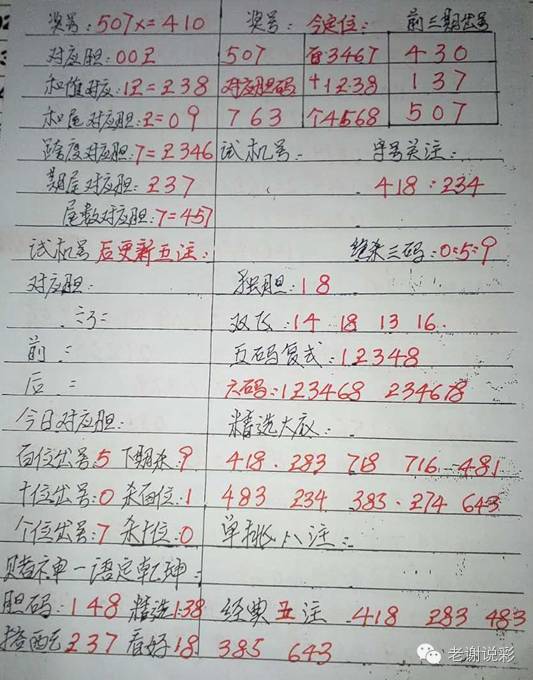 奖号:507x=410 奖号: 今定位: 前三期出号
对应胆:002 507 百3467 430
和值对应:12=238 对应胆码 十1238 137
和尾对应胆:2=09 763 个4568 507
跨度对应胆:7=2346 试机号: 字号关注:
期尾对应胆:237 418:234
尾数对应胆:7=457
试机号后更新五注: 绝杀三码:0:5:9
对应胆: 独胆:18
双飞:14 18 13 16
前: 五码复式:12348
后: 六码:123468 234678
今日对应胆: 精选大底:
百位出号:5 下期杀:9 418. 283 718 716 481
十位出号:0 杀百位:1 483 234 383. 274 643
个位出号:7 杀十位:0 单挑八注:
赌神一语定乾坤:
胆码:148 精选138 经典五注 418 283 483
搭配237 看好18 385 643
老谢说彩